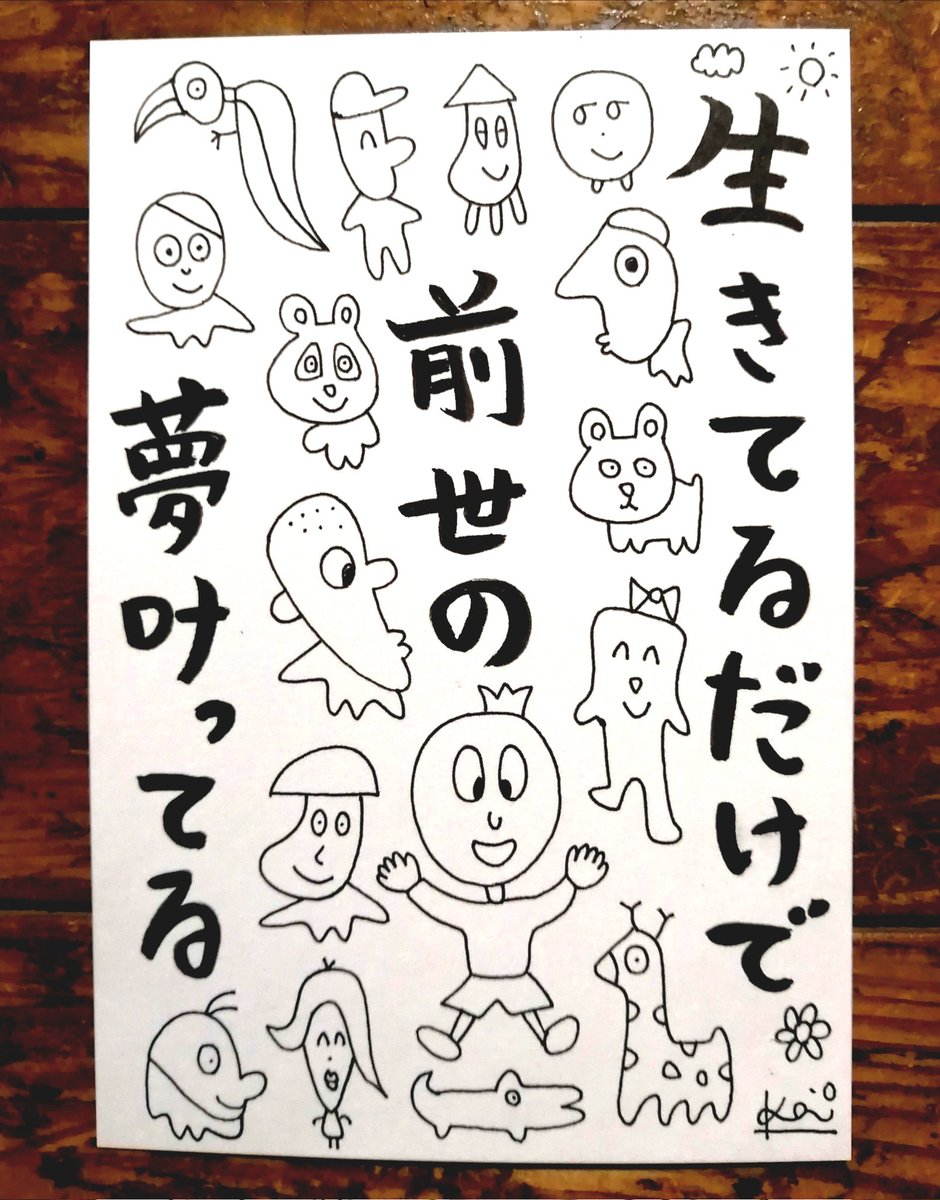 生きてるだけで
前世の
夢叶ってる
Kai